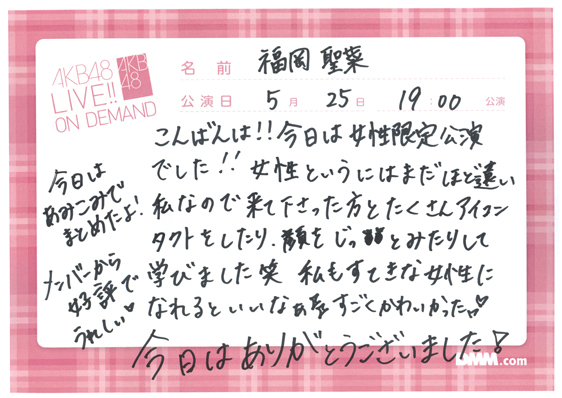 AKB48
LIVE!!
ON DEMAND
AKB
48
名前 福岡 聖菜
公演日 5月 25日 19:00 公演
こんばんは!!今日は女性限定公演
でした!!女性というにはまだほど遠い
私なので来て下さった方とたくさんアイコン
タクトをしたり、顔をじっとみたりして
学びました笑 私もすてきな女性に
なれるといいなぁ すごくかわいかった♡
今日はありがとうございました!
今日は
あみこみで
まとめたよ!
メンバーから
好評で
うれしい♡
DMM.com